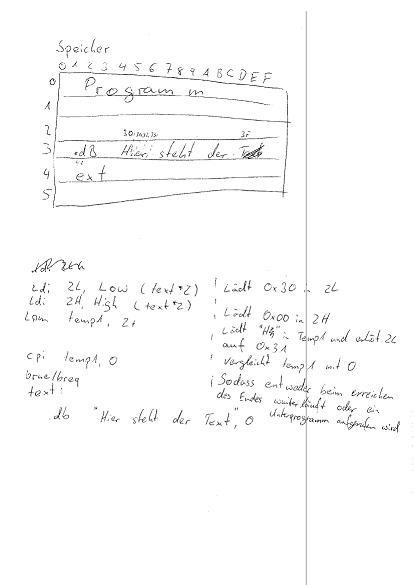 Speicher
0 1 2 3 4 5 6 7 8 9 A B C D E F
0 Programm
1
2
3 .dB Hier steht der T
4 ext
5
ldi ZL, Low (text*2) ; Lädt 0x30 in ZL
ldi ZH, High (text*2) ; Lädt 0x00 in ZH
Lpm temp1, Z+ ; Lädt in Temp1 und erhöt ZL
auf 0x31
cpi temp1, 0 ; Vergleicht temp1 mit 0
brne/breq ; Sodass entweder beim erreichen
text: des Endes weiter läuft oder ein
.db "Hier steht der Text", 0 Unterprogramm aufgerufen wird